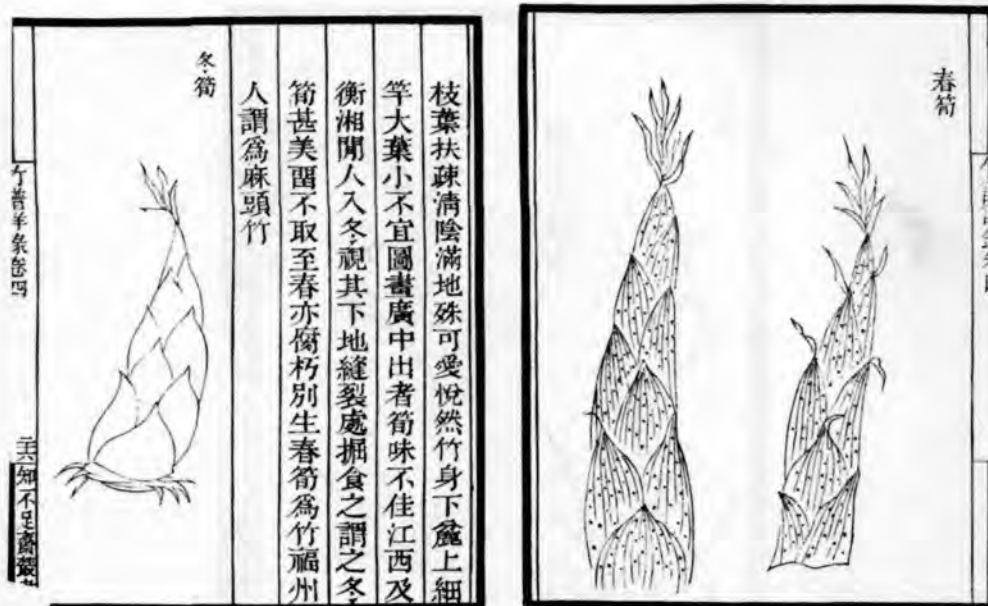 春筍
枝葉扶疎淸陰滿地殊可愛悅然竹身下麄上細
竿大葉小不宜圖畫廣中出者筍味不佳江西及
衡湘閒人入冬視其下地縫裂處掘食之謂之冬
筍甚美畱不取至春亦腐朽別生春筍爲竹福州
人謂爲麻頭竹
冬筍
竹譜詳彔卷四
知不足齋叢